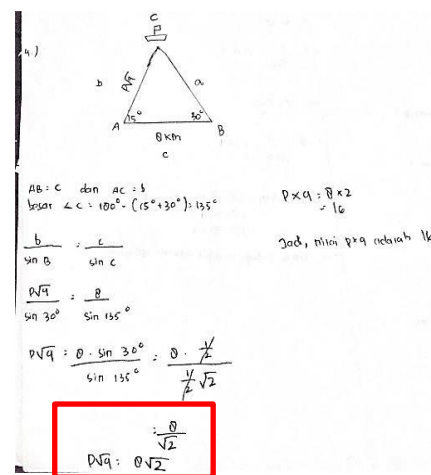 4.)
C
b
p√q
a
A
15°
30°
B
8 km
c
AB = c dan AC = b
besar ∠C = 180° - (15° + 30°) = 135°
b/sin B = c/sin C
p√q/sin 30° = 8/sin 135°
p√q = 8 · sin 30°/sin 135° = 8 · 1/2 / 1/2 √2
= 8/√2
p√q = 8√2
p × q = 8 × 2
= 16
Jadi, nilai p×q adalah 16